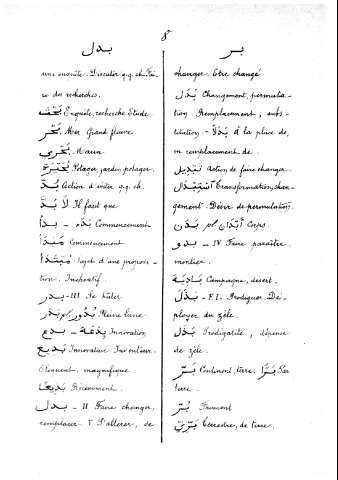 8
بدل
une enquête. Discuter q.q. ch. Fai-
re des recherches.
بَحْث Enquête, recherche Etude
بَحْر Mer Grand fleuve
بَحْرِي Marin
Potager, jardin potager.
بُدّ Action d'éviter q.q. ch.
لَا بُدَّ Il faut que
بَدْء – بدأ Commencement
مَبْدَأ Commencement
مُبْتَدَأ Sujet d'une proposi-
tion. Inchoatif.
بدر – III Se hâter
بَدْر pl. بُدُور Pleine lune
بدع – بِدْعَة Innovation
بَدِيع Innovateur Inventeur.
Eloquent, magnifique.
Récemment.
بدل – II Faire changer,
remplacer. V S'altérer, de
بر
changer. Etre changé
بَدَل Changement, permuta-
tion Remplacement, subs-
titution – بَدَلًا à la place de,
en remplacement de.
تَبْدِيل Action de faire changer.
اِسْتِبْدَال Transformation, chan-
gement. Désir de permutation.
بَدَن pl. أَبْدَان Corps.
بدو – IV Faire paraître,
montrer.
بَادِيَة Campagne, désert.
بَذَل – F.I. Prodiguer. Dé-
ployer du zèle.
بَذْل Prodigalité, dépense
de zèle.
بَرّ Continent, terre. بَرًّا Par
terre.
بُرّ Froment
بَرِّيّ Terrestre, de terre.